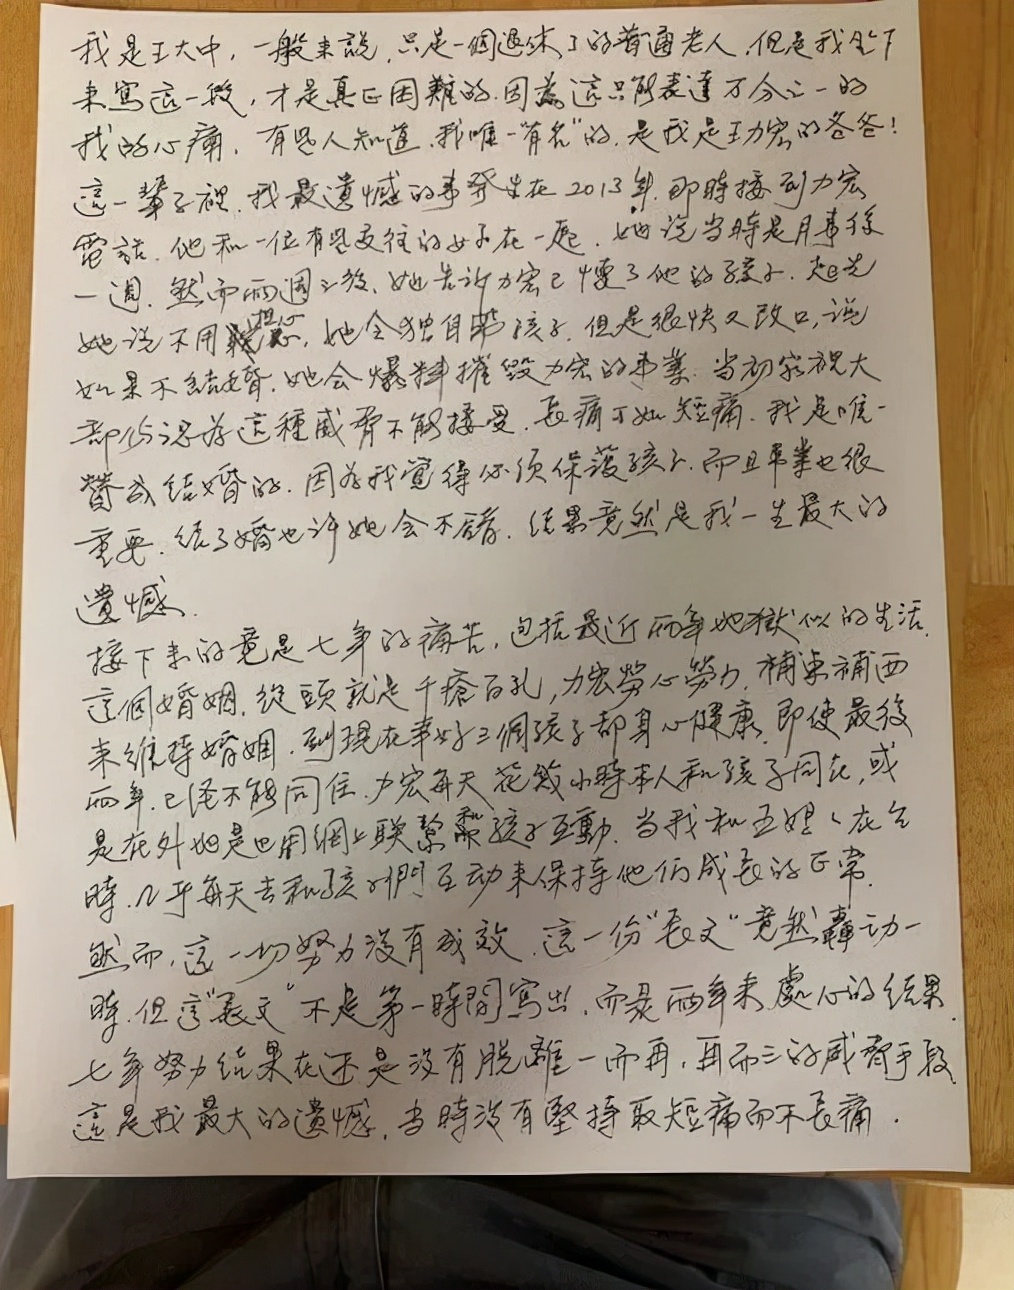 我是王大中，一般来說，只是一個退休了的普通老人，但是我坐下
来寫這一段，才是真正困難的，因為這只能表達万分之一的
我的心痛，有些人知道，我唯一"有名"的，是我是王力宏的爸爸！
這一輩子裡，我最遺憾的事発生在2013年，即時接到力宏
電話，他和一位有些交往的女子在一起，她说当時是月事後
一週，然而兩週之後，她告诉力宏已懷了他的孩子，起先
她说不用担心，她会独自带孩子，但是很快又改口，说
如果不结婚，她会爆料摧毁力宏的事業，当初家裡大
都认为這種威脅不能接受，長痛不如短痛，我是唯一
贊成结婚的，因为我覺得必须保護孩子，而且事業也很
重要，结了婚也许她会不錯，结果竟然是我一生最大的
遺憾，
接下来的竟是七年的痛苦，包括最近兩年地獄似的生活，
這個婚姻，從頭就是千瘡百孔，力宏勞心勞力，補東補西
来维持婚姻，到現在幸好三個孩子都身心健康，即使最後
兩年，已经不能同住，力宏每天花幾小時本人和孩子同在，或
是在外地是也用網上联繫和孩子互動，当我和王媽媽在台
時，几乎每天去和孩子們互动来保持他们成長的正常，
然而，這一切努力没有成效，這一份"長文"竟然轟动一
時，但這"長文"不是第一時間寫出，而是兩年来處心的结果，
七年努力结果在还是没有脱離一而再，再而三的威脅手段，
這是我最大的遺憾，当時没有堅持取短痛而不長痛．